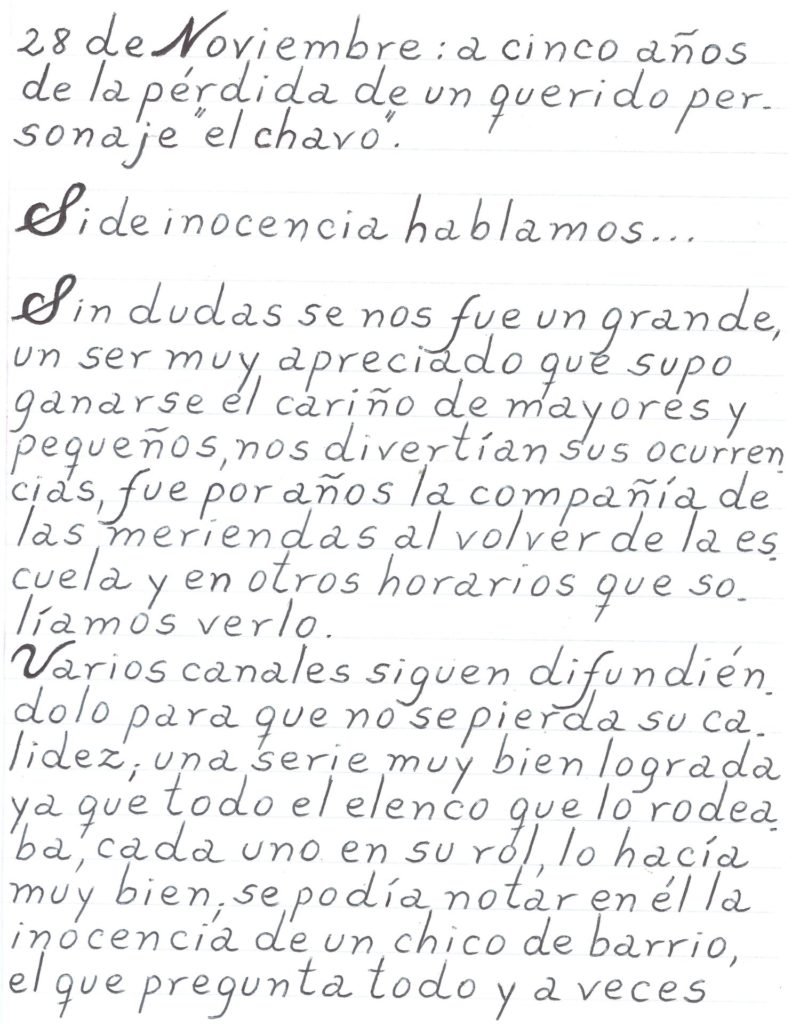 28 de Noviembre: a cinco años
de la pérdida de un querido per-
sonaje "el chavo".
Si de inocencia hablamos...
Sin dudas se nos fue un grande,
un ser muy apreciado que supo
ganarse el cariño de mayores y
pequeños, nos divertían sus ocurren_
cias, fue por años la compañía de
las meriendas al volver de la es_
cuela y en otros horarios que so_
líamos verlo.
Varios canales siguen difundién_
dolo para que no se pierda su ca_
lidez; una serie muy bien lograda
ya que todo el elenco que lo rodea_
ba, cada uno en su rol, lo hacía
muy bien; se podía notar en él la
inocencia de un chico de barrio,
el que pregunta todo y a veces